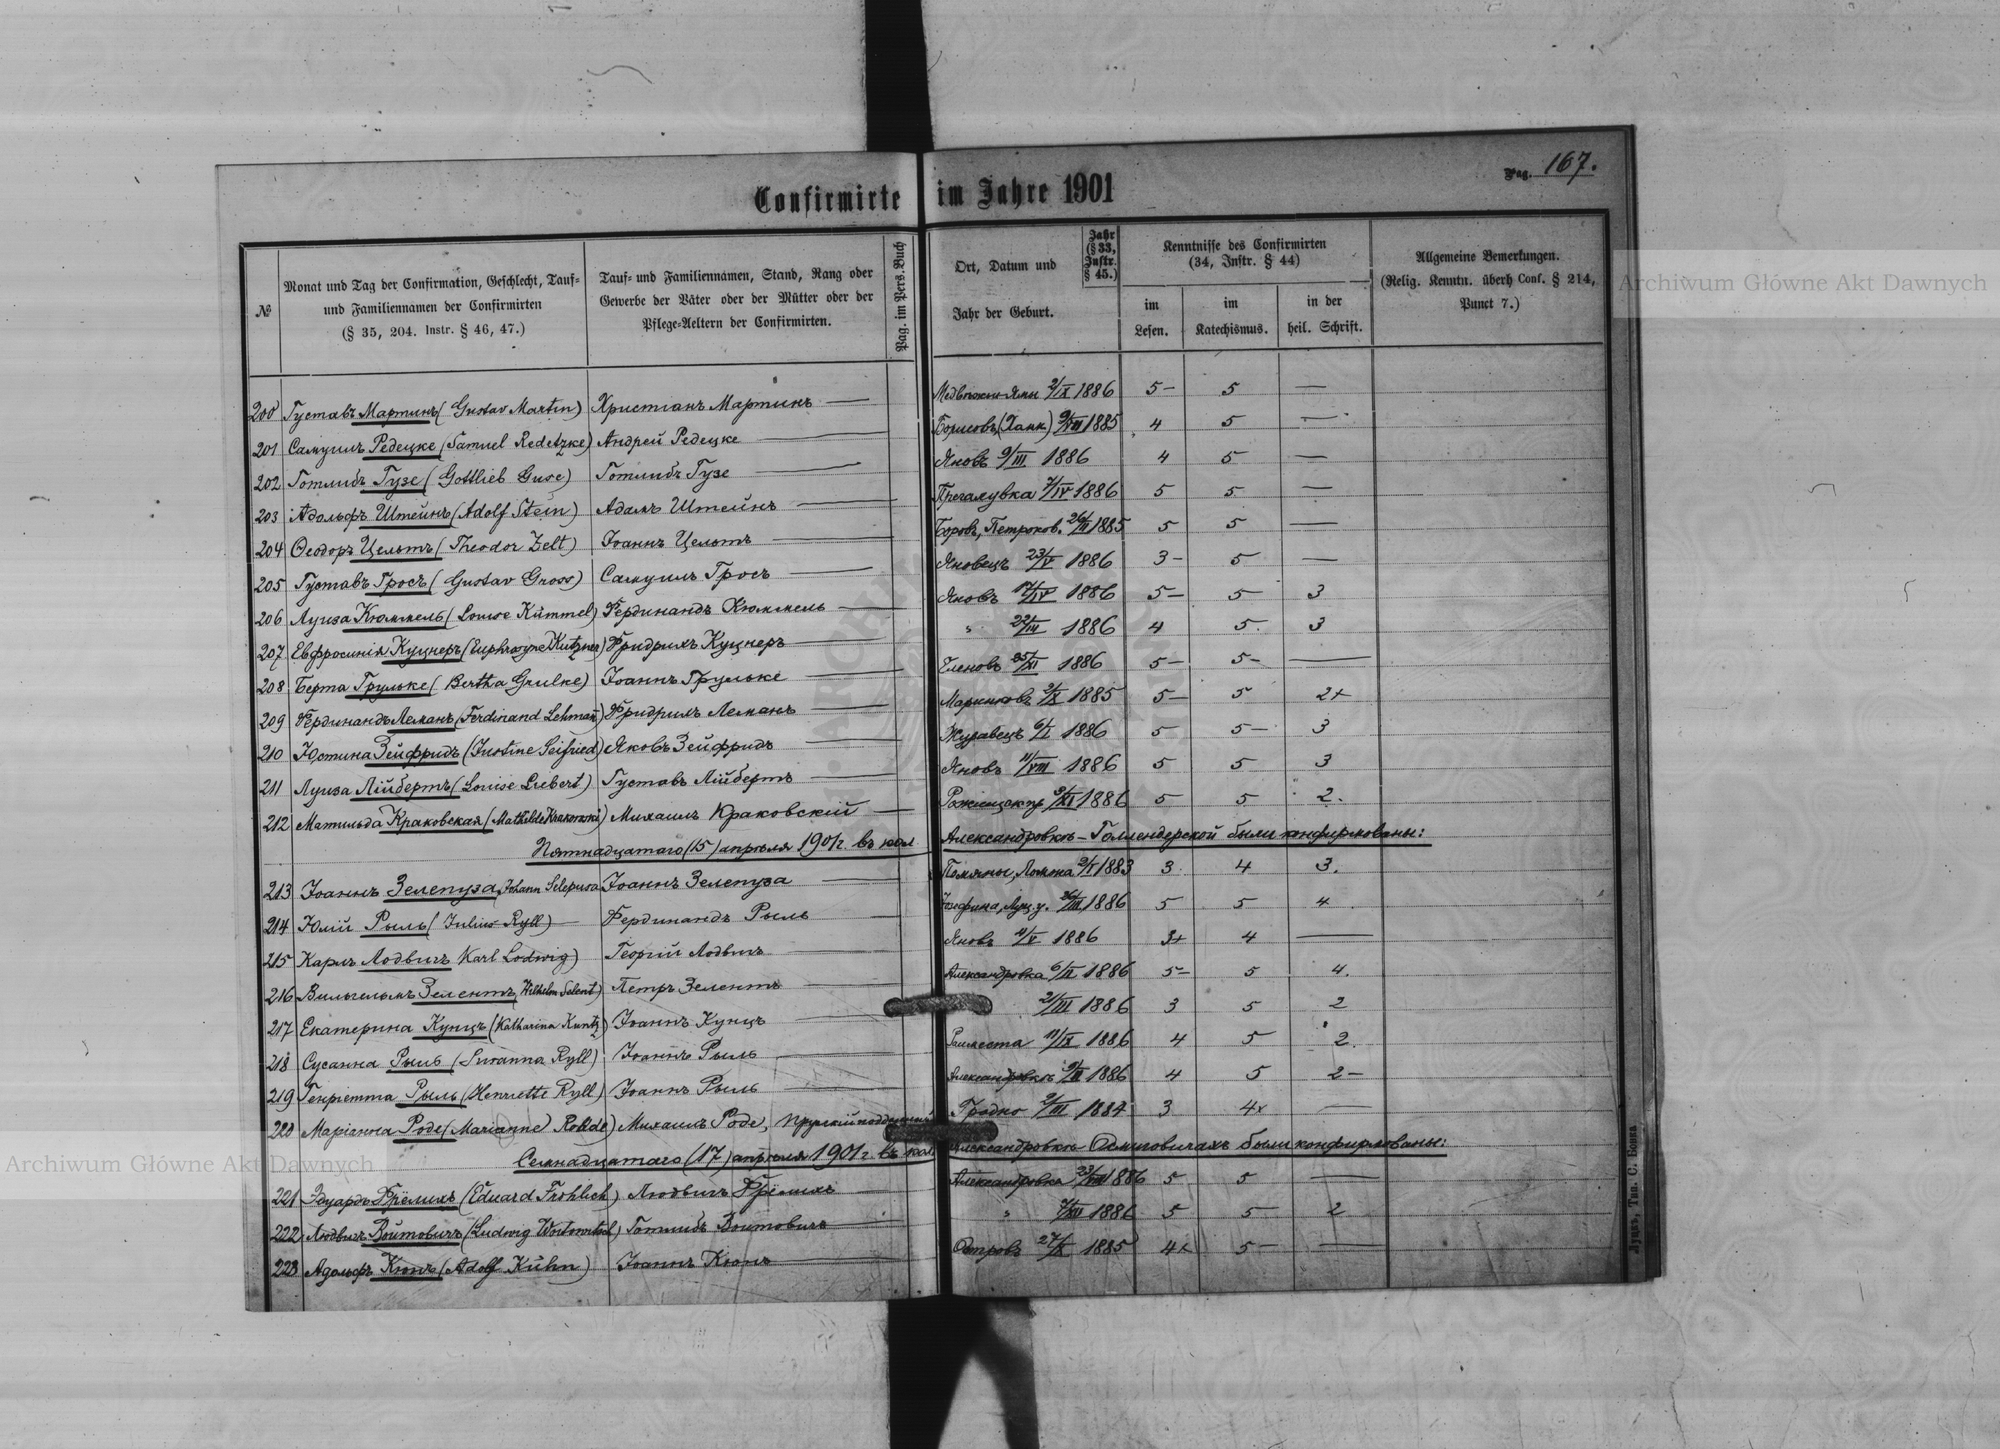 Pag. 167.
Confirmirte im Jahre 1901
№
Monat und Tag der Confirmation, Geschlecht, Tauf-
und Familiennamen der Confirmirten
(§ 35, 204. Instr. § 46, 47.)
Tauf- und Familiennamen, Stand, Rang oder
Gewerbe der Väter oder der Mütter oder der
Pflege-Aeltern der Confirmirten.
Pag. im Pers.Buch
Ort, Datum und
Jahr der Geburt.
Jahr
(§ 33,
Instr.
§ 45.)
Kenntnisse des Confirmirten
(34, Instr. § 44)
im
Lesen.
im
Katechismus.
in der
heil. Schrift.
Allgemeine Bemerkungen.
(Relig. Kenntn. überh Conf. § 214,
Punct 7.)
200 Густавъ Мартинъ (Gustav Martin) Христіанъ Мартинъ — 2/IX 1886 5- 5 —
201 Самуилъ Редецке (Samuel Redetzke) Андрей Редецке — Борисовъ, 9/VIII 1885 4 5 —
202 Готлибъ Гузе (Gottlieb Guse) Готлибъ Гузе — Яновъ 9/III 1886 4 5 —
203 Адольфъ Штейнъ (Adolf Stein) Адамъ Штейнъ — 7/IV 1886 5 5 —
204 Ѳеодоръ Цельтъ (Theodor Zelt) Іоаннъ Цельтъ — Петроков. 1885 5 5 —
205 Густавъ Гросъ (Gustav Gross) Самуилъ Гросъ — Яновецъ 23/V 1886 3- 5 —
206 Луиза Кюммель (Louise Kümmel) Фердинандъ Кюммель — Яновъ 1886 5- 5 3
207 Евфросинія Куцнеръ (Euphrosyne Kutzner) Фридрихъ Куцнеръ — " 1886 4 5. 3
208 Берта Грульке (Bertha Grulke) Іоаннъ Грульке — Еленовъ 25/XI 1886 5- 5- —
209 Фердинандъ Леманъ (Ferdinand Lehman) Фридрихъ Леманъ — 2/X 1885 5- 5 2+
210 Юстина Зейфридъ (Justine Seifried) Яковъ Зейфридъ — Журавецъ 6/I 1886 5 5- 3
211 Луиза Лійбертъ (Louise Liebert) Густавъ Лійбертъ — Яновъ 11/VIII 1886 5 5 3
212 Матильда Краковская (Mathilde Krakowski) Михаилъ Краковскій — 9/XI 1886 5 5 2.
Пятнадцатаго (15) апрѣля 1901 г. въ кол. Александровкѣ-Голлендерской были конфирмованы:
213 Іоаннъ Зелепуза, Johann Selepusa Іоаннъ Зелепуза — 1883 3. 4 3.
214 Юлій Рыль (Julius Ryll) — Фердинандъ Рыль — Іозефина, Луц. у. 1886 5 5 4
215 Карлъ Лодвигъ Karl Lodwig) Георгій Лодвигъ — Яновъ 11/V 1886 3+ 4 —
216 Вильгельмъ Зелентъ, Wilhelm Selent) Петръ Зелентъ — Александровка 6/II 1886 5- 5 4.
217 Екатерина Кунцъ (Katharina Kuntz) Іоаннъ Кунцъ — 2/III 1886 3 5 2
218 Сусанна Рыль (Susanna Ryll) Іоаннъ Рыль — 11/IX 1886 4 5 2.
219 Генріетта Рыль (Henriette Ryll) Іоаннъ Рыль — Александровкѣ 1886 4 5 2-
220 Маріанна Роде (Marianne Rohde) Михаилъ Роде, прусскій подданный Гродно 2/III 1884 3 4+ —
Семнадцатаго (17) апрѣля 1901 г. въ кол. Александровкѣ-Осмиговичахъ были конфирмованы:
221 Эдуардъ Фрёлихъ (Eduard Fröhlich) Людвигъ Фрёлихъ — Александровка 23/VIII 1886 5 5 —
222 Людвигъ Войтовичъ (Ludwig ) Готлибъ Войтовичъ — " 7/XII 1886 5 5 2
223 Адольфъ Кюнъ (Adolf Kühn) Іоаннъ Кюнъ — Островъ 27/X 1885 4+ 5- —
Луцкъ, Тип. С. Бонка
Archiwum Główne Akt Dawnych
Archiwum Główne Akt Dawnych